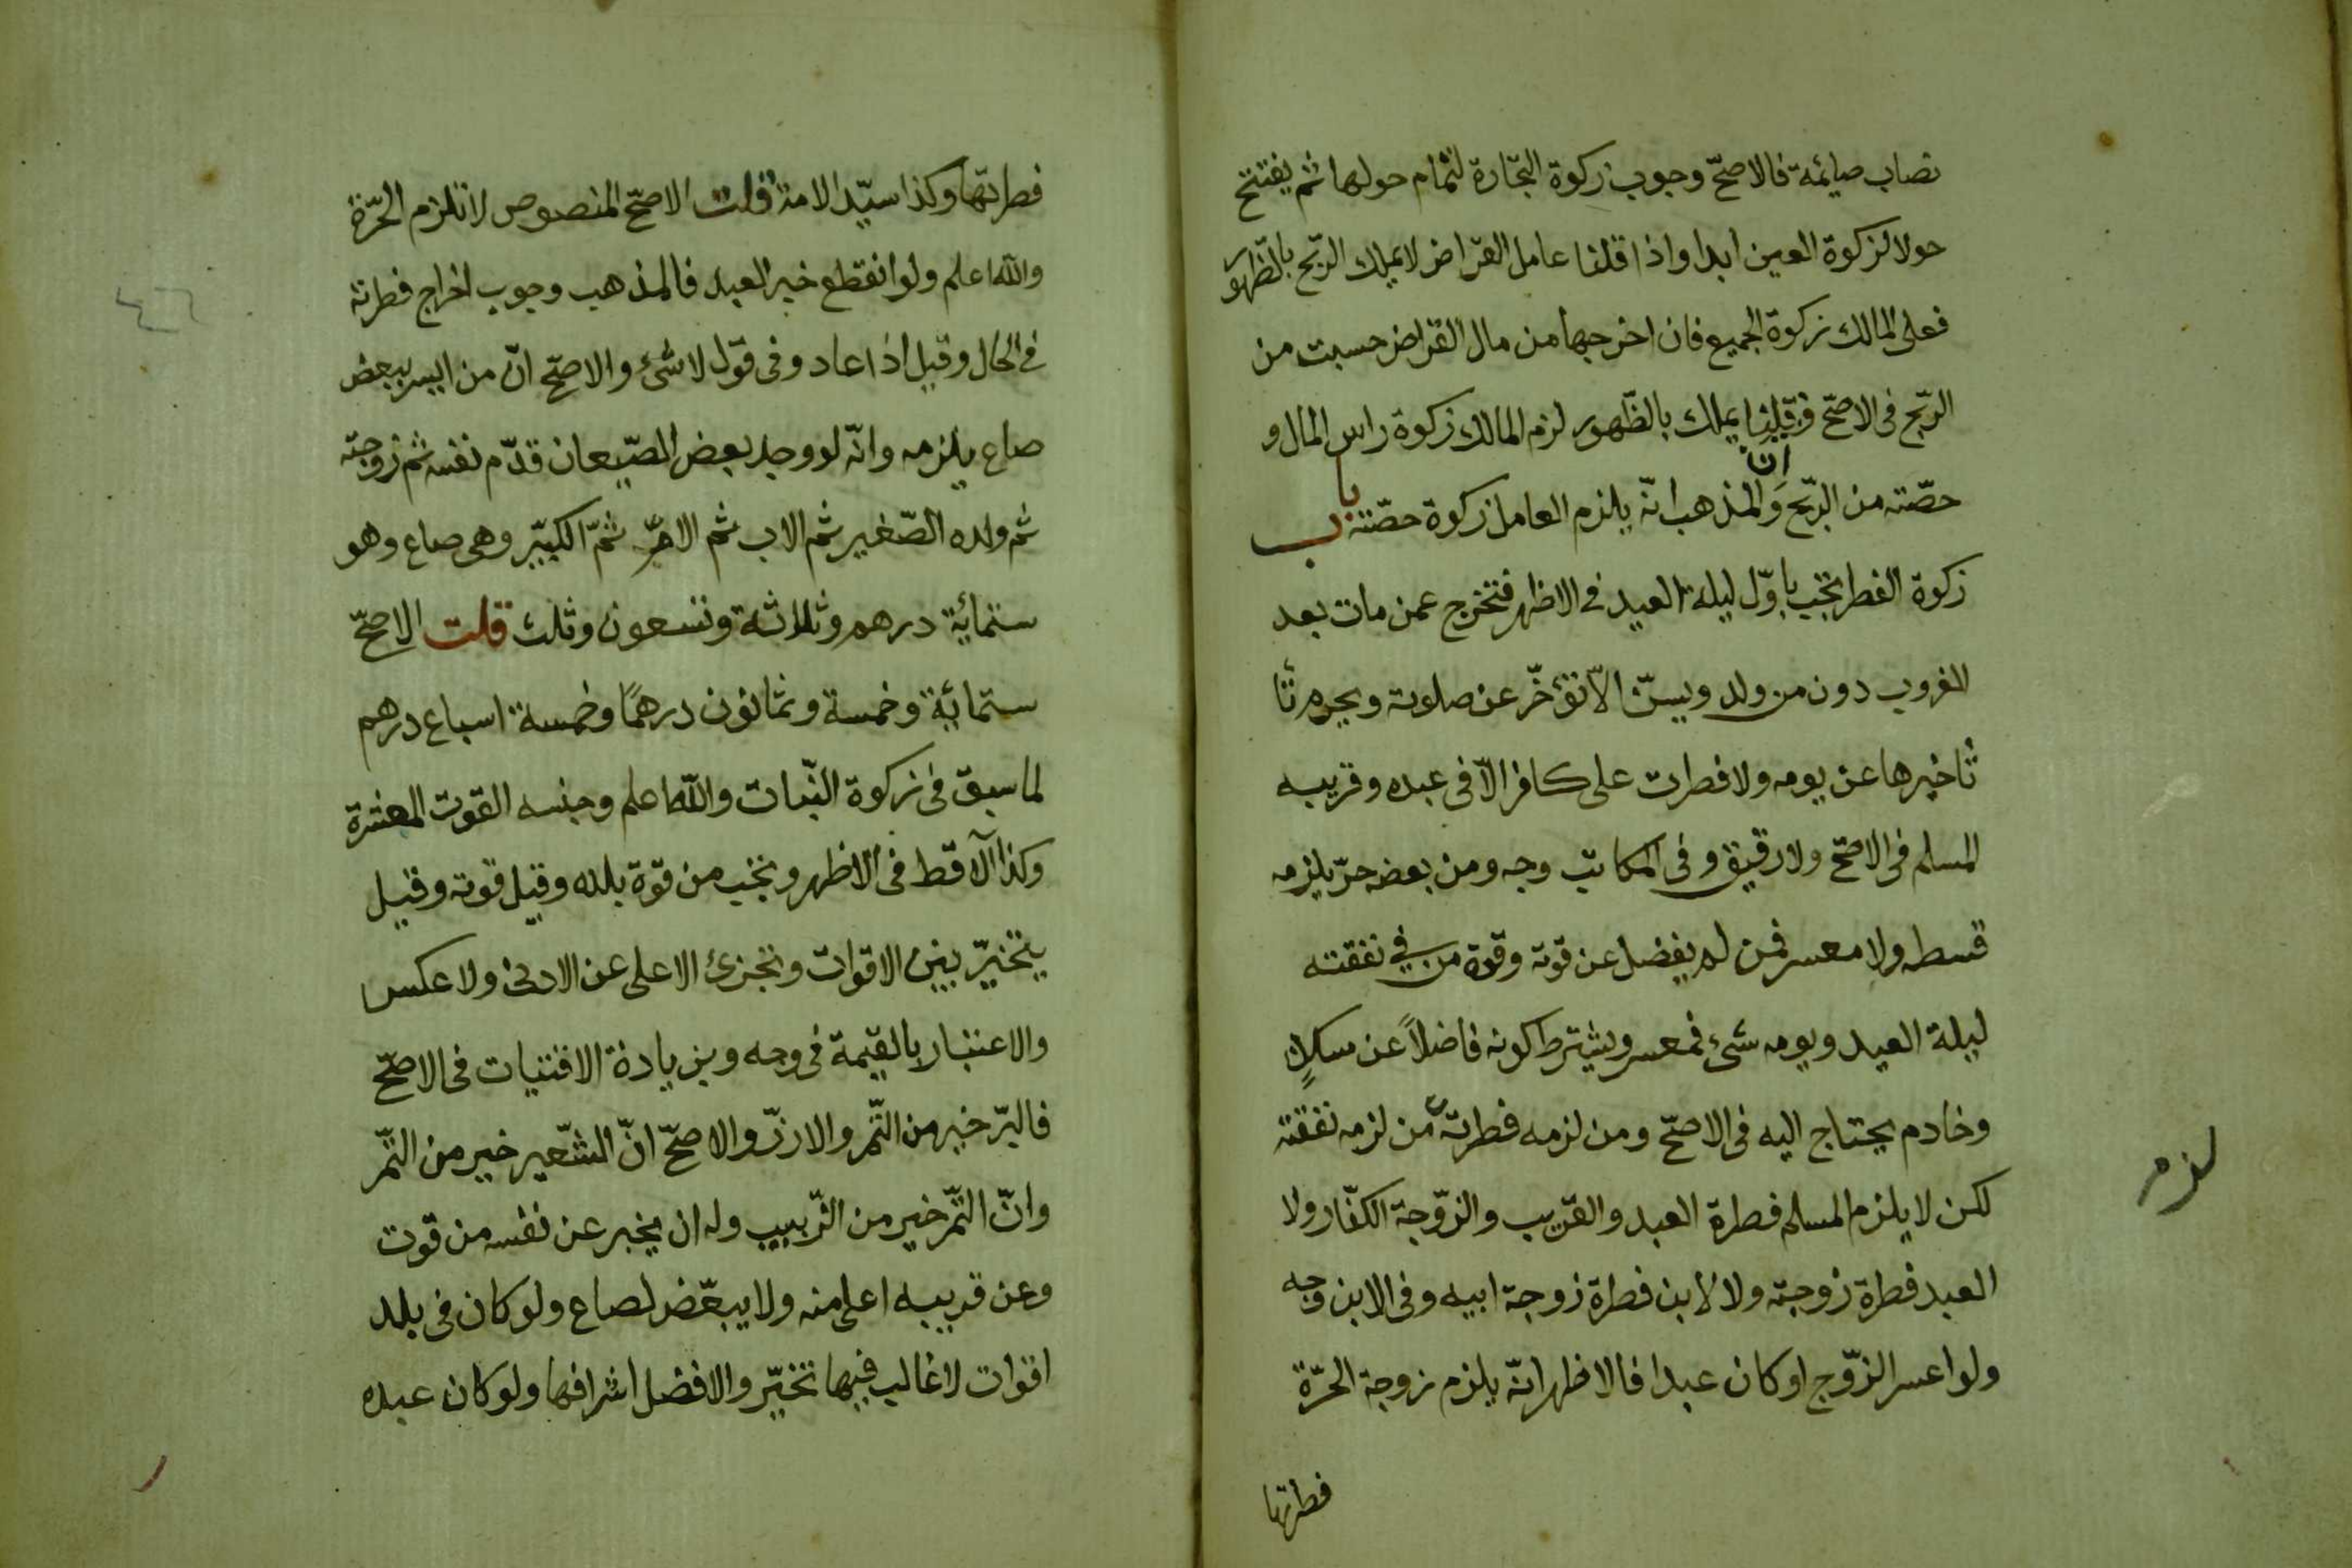 نصاب صايمة فالاصحّ وجوب زكوة التّجارة لتمام حولها ثم يفتتح
حولا لزكوة العين ابدا واذا قلنا عامل القراض لايملك الربّح بالظّهور
فعلى المالك زكوة الجميع فان اخرجها من مال القراض حسبت من
الربّح فى الاصحّ وان قلنا يملك بالظّهور لزم المالك زكوة راس المال و
حصّته من الربّح والمذهب انّه يلزم العامل زكوة حصّته باب
زكوة الفطر تجب باوّل ليلة العيد فى الاظهر فتخرج عمن مات بعد
الغروب دون من ولد ويسنّ الاّ تؤخّر عن صلوته ويحرم تأ
تأخيرها عن يومه ولا فطرت على كافر الاّ فى عبده وقريبه
المسلم فى الاصحّ ولا رقيق وفى المكاتب وجه ومن بعضه حرّ يلزمه
قسطه ولا معسر فمن لم يفضل عن قوته وقوة من في نفقته
ليلة العيد ويومه شئ فمعسر ويشترط كونه فاضلاً عن سكلٍ
وخادم يحتاج اليه فى الاصحّ ومن لزمه فطرته من لزمه نفقته
لكن لا يلزم المسلم فطرة العبد والقريب والزّوجة الكفّار ولا
العبد فطرة زوجته ولا لابن فطرة زوجة ابيه وفى الابن وجه
ولو اعسر الزّوج او كان عبدا فالاظهر انّه يلزم زوجة الحرّة
فطرتها
لزم
فطرتها وكذا سيّد الامة قلت الاصحّ المنصوص لا تلزم الحرّة
والله اعلم ولو انقطع خبر العبد فالمذهب وجوب اخراج فطرته
فى الحال وقيل اذا عاد وفى قول لا شئ والاصحّ انّ من ايسر ببعض
صاع يلزمه وانّه لو وجد بعض الصّيعان قدّم نفسه ثم زوجته
ثم ولده الصّغير ثم الاب ثم الامّ ثمّ الكبيّر وهى صاع وهو
ستمائة درهم وثلاثة وتسعون وثلث قلت الاصحّ
ستمائة وخمسة وثمانون درهمًا وخمسة اسباع درهم
لما سبق فى زكوة النّبات والله اعلم وجنسه القوت المعشرة
وكذا الآقط فى الاظهر وتجب من قوة بلده وقيل قوته وقيل
يتخيّر بين الاقوات وتجزئ الاعلى عن الادنى ولا عكس
والاعتبار بالقيمة فى وجه وبزيادة الاقتيات فى الاصحّ
فالبّر خير من التّمر والارزّ والاصحّ انّ الشّعير خير من التّمر
وانّ التّمر خير من الزّبيب وله ان يخبر عن نفسه من قوت
وعن قريبه اعلى منه ولا يبعّض لصاع ولو كان فى بلد
اقوات لا غالب فيها تخيّر والافضل اشرافها ولو كان عبده
٤٦